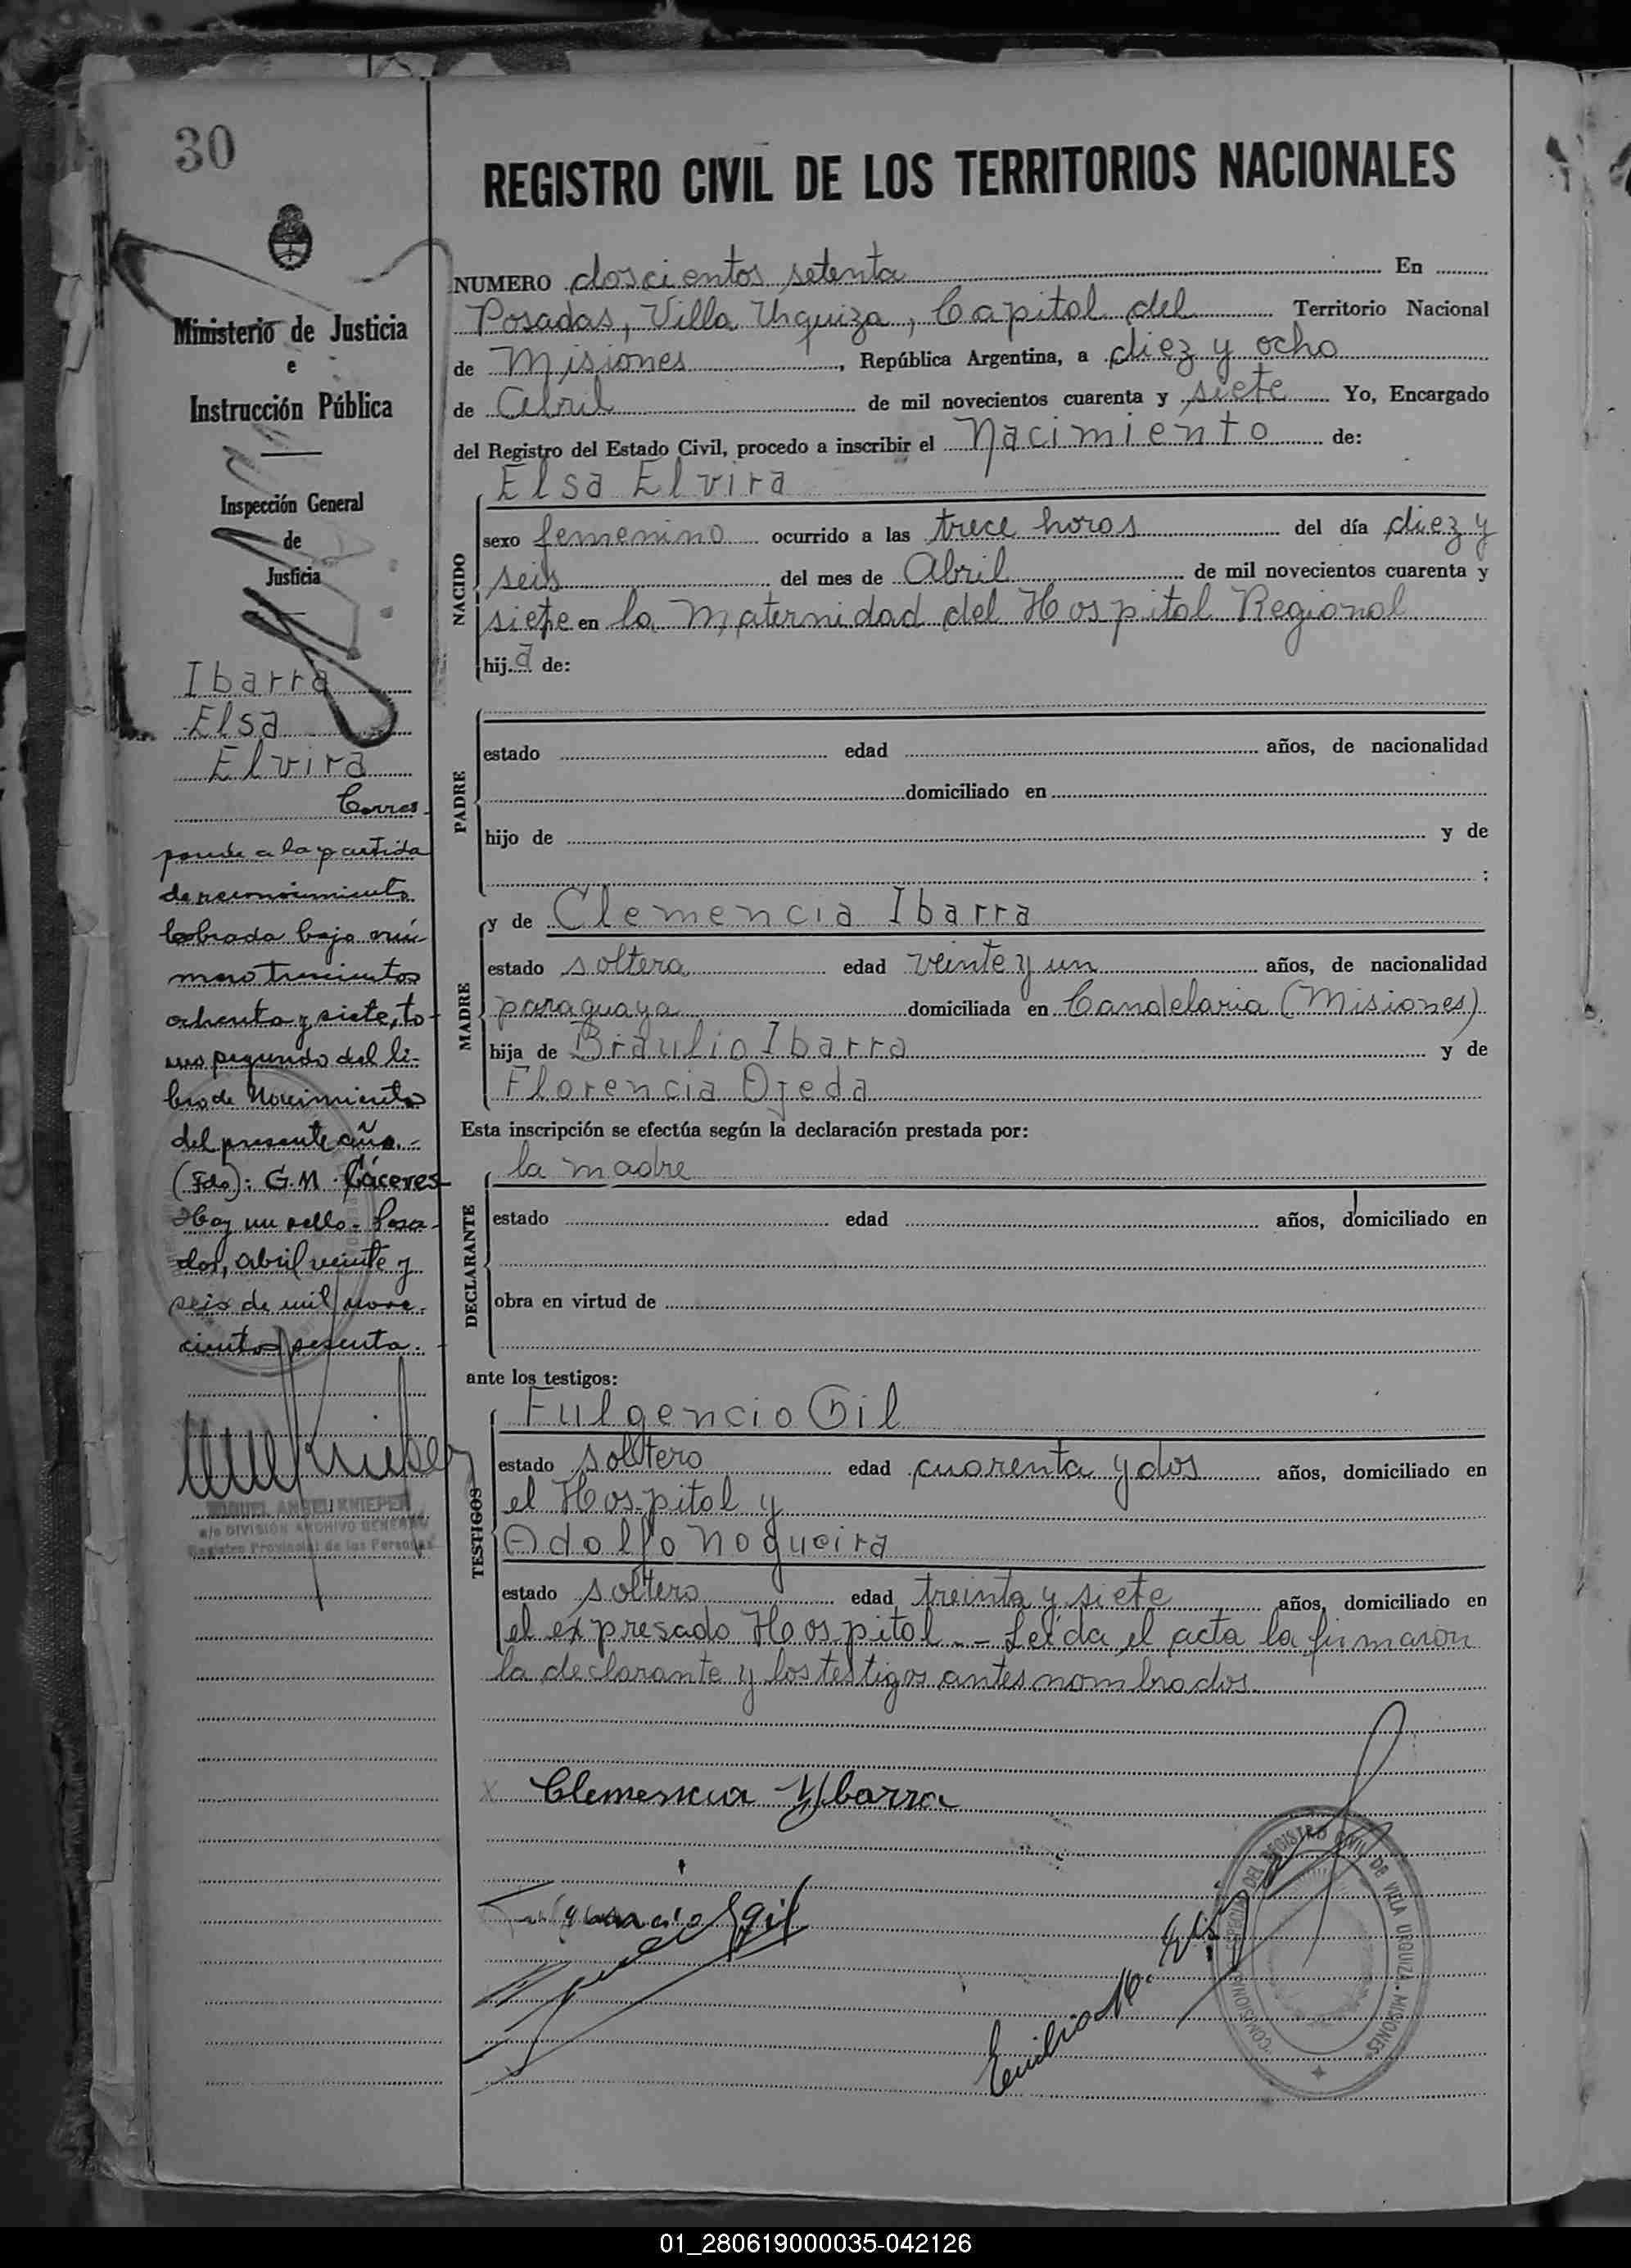 30
REGISTRO CIVIL DE LOS TERRITORIOS NACIONALES
Ministerio de Justicia
e
Instrucción Pública
Inspección General
de
Justicia
Ibarra
Elsa
Elvira
Corres-
ponde a la partida
de reconocimiento
labrada bajo nú-
mero trescientos
ochenta y siete, to-
mo segundo del li-
bro de Nacimientos
del presente año.-
(Fdo): G.M. Cáceres
Hay un sello.- Posa-
das, abril veinte y
seis de mil nove-
cientos sesenta.-
MIGUEL ANGEL KNIEPER
a/c DIVISIÓN ARCHIVO GENERAL
Registro Provincial de las Personas
NUMERO doscientos setenta En
Posadas, Villa Urquiza, Capital del Territorio Nacional
de Misiones, República Argentina, a diez y ocho
de Abril de mil novecientos cuarenta y siete Yo, Encargado
del Registro del Estado Civil, procedo a inscribir el Nacimiento de:
Elsa Elvira
NACIDO
sexo femenino ocurrido a las trece horas del día diez y
seis del mes de Abril de mil novecientos cuarenta y
siete en la Maternidad del Hospital Regional
hij.a de:
PADRE
estado edad años, de nacionalidad
domiciliado en
hijo de y de
:
MADRE
y de Clemencia Ibarra
estado soltera edad veinte y un años, de nacionalidad
paraguaya domiciliada en Candelaria (Misiones)
hija de Braulio Ibarra y de
Florencia Ojeda
Esta inscripción se efectúa según la declaración prestada por:
la madre
DECLARANTE
estado edad años, domiciliado en
obra en virtud de
ante los testigos:
TESTIGOS
Fulgencio Gil
estado soltero edad cuarenta y dos años, domiciliado en
el Hospital y
Adolfo Nogueira
estado soltero edad treinta y siete años, domiciliado en
el expresado Hospital.- Leída el acta la firmaron
la declarante y los testigos antes nombrados.
x Clemencia Ybarra
Fulgencio Gil
Emilio
COMISION ESPECIAL DEL REGISTRO CIVIL DE VILLA URQUIZA · MISIONES
01_280619000035-042126